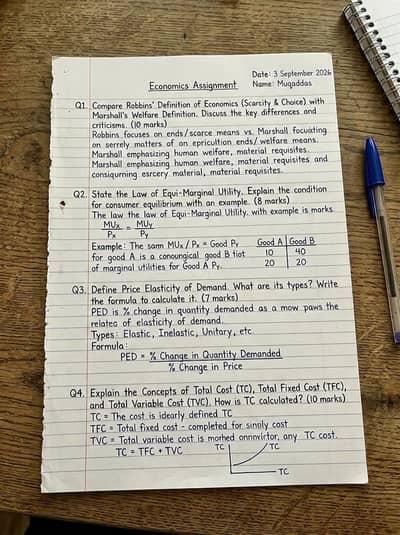 Date: 3 September 2026
Economics Assignment Name: Muqaddas
Q1. Compare Robbins' Definition of Economics (Scarcity & Choice) with
Marshall's Welfare Definition. Discuss the key differences and
criticisms. (10 marks)
Robbins focuses on ends/scarce means vs. Marshall focuiating
on serrely matters of an epricultion ends/welfare means.
Marshall emphasizing human welfare, material requisites.
Marshall emphasizing human welfare, material requisites and
consiqurning esrcery material, material requisites.
Q2. State the Law of Equi-Marginal Utility. Explain the condition
for consumer equilibrium with an example. (8 marks)
The law the law of Equi-Marginal Utility. with example is marks.
MUx = MUy
Px Py
Example: The sarn MUx / Px = Good Py
for good A is a conoungical good B tiot
of marginal utilities for Good A Py.
Good A Good B
10 40
20 20
Q3. Define Price Elasticity of Demand. What are its types? Write
the formula to calculate it. (7 marks)
PED is % change in quantity demanded as a mow paws the
relateo of elasticity of demand.
Types: Elastic, Inelastic, Unitary, etc.
Formula:
PED = % Change in Quantity Demanded
% Change in Price
Q4. Explain the Concepts of Total Cost (TC), Total Fixed Cost (TFC),
and Total Variable Cost (TVC). How is TC calculated? (10 marks)
TC = The cost is idearly defined TC
TFC = Total fixed cost - completed for sinply cost
TVC = Total variable cost is morhed onnnvirtor, any TC cost.
TC = TFC + TVC
TC TC
TC